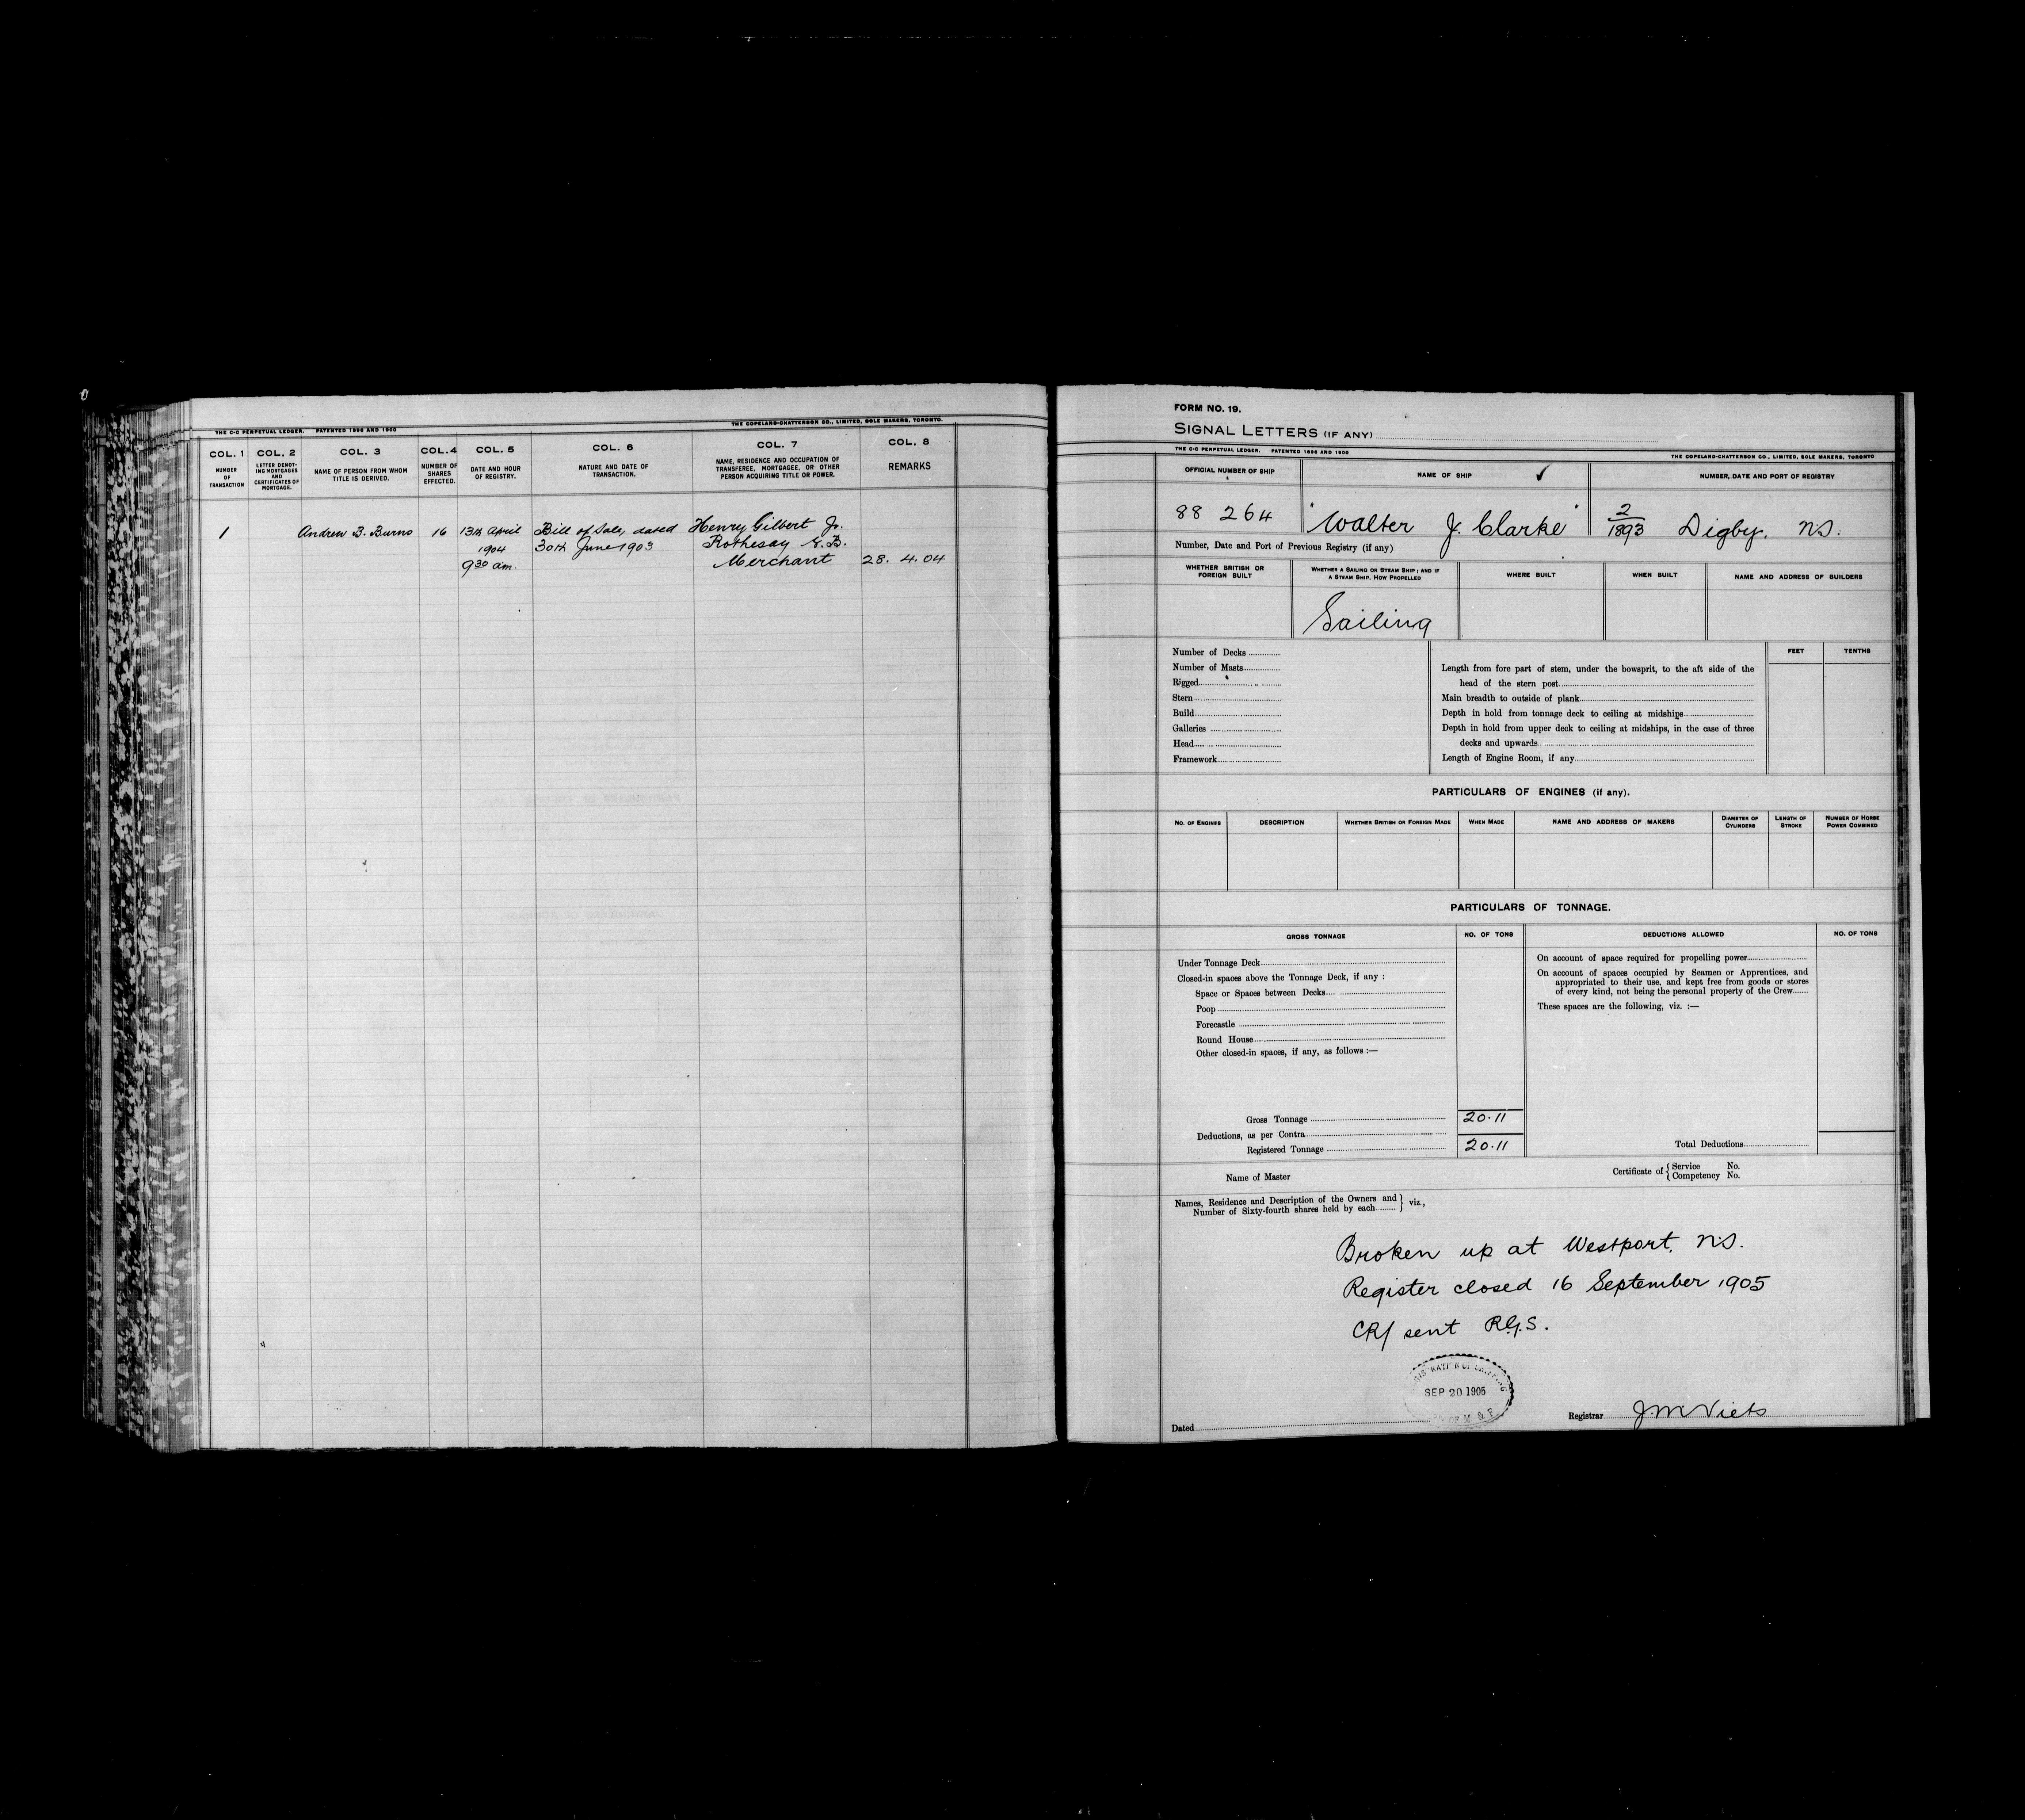 THE C-C PERPETUAL LEDGER. PATENTED 1898 AND 1900
THE COPELAND-CHATTERSON CO., LIMITED, SOLE MAKERS, TORONTO.
COL. 1 COL. 2 COL. 3 COL. 4 COL. 5 COL. 6 COL. 7 COL. 8
NUMBER OF TRANSACTION
LETTER DENOTING MORTGAGES AND CERTIFICATES OF MORTGAGE.
NAME OF PERSON FROM WHOM TITLE IS DERIVED.
NUMBER OF SHARES EFFECTED.
DATE AND HOUR OF REGISTRY.
NATURE AND DATE OF TRANSACTION.
NAME, RESIDENCE AND OCCUPATION OF TRANSFEREE, MORTGAGEE, OR OTHER PERSON ACQUIRING TITLE OR POWER.
REMARKS
1 Andrew B. Burns 16 13th April Bill of Sale, dated Henry Gilbert Jr.
1904 30th June 1903 Rothesay N.B.
9 30 am. Merchant 28. 4. 04
FORM NO. 19.
SIGNAL LETTERS (IF ANY)
THE C-C PERPETUAL LEDGER. PATENTED 1898 AND 1900
THE COPELAND-CHATTERSON CO., LIMITED, SOLE MAKERS, TORONTO
OFFICIAL NUMBER OF SHIP NAME OF SHIP ✓ NUMBER, DATE AND PORT OF REGISTRY
88 264 "Walter J. Clarke" 2/1893 Digby. N.S.
Number, Date and Port of Previous Registry (if any)
WHETHER BRITISH OR FOREIGN BUILT
WHETHER A SAILING OR STEAM SHIP; AND IF A STEAM SHIP, HOW PROPELLED
WHERE BUILT
WHEN BUILT
NAME AND ADDRESS OF BUILDERS
Sailing
Number of Decks
Number of Masts
Rigged
Stern
Build
Galleries
Head
Framework
FEET TENTHS
Length from fore part of stem, under the bowsprit, to the aft side of the
head of the stern post
Main breadth to outside of plank
Depth in hold from tonnage deck to ceiling at midships
Depth in hold from upper deck to ceiling at midships, in the case of three
decks and upwards
Length of Engine Room, if any
PARTICULARS OF ENGINES (if any).
NO. OF ENGINES DESCRIPTION WHETHER BRITISH OR FOREIGN MADE WHEN MADE NAME AND ADDRESS OF MAKERS DIAMETER OF CYLINDERS LENGTH OF STROKE NUMBER OF HORSE POWER COMBINED
PARTICULARS OF TONNAGE.
GROSS TONNAGE NO. OF TONS DEDUCTIONS ALLOWED NO. OF TONS
Under Tonnage Deck
Closed-in spaces above the Tonnage Deck, if any :
Space or Spaces between Decks
Poop
Forecastle
Round House
Other closed-in spaces, if any, as follows :—
Gross Tonnage 20.11
Deductions, as per Contra
Registered Tonnage 20.11
On account of space required for propelling power
On account of spaces occupied by Seamen or Apprentices, and
appropriated to their use, and kept free from goods or stores
of every kind, not being the personal property of the Crew
These spaces are the following, viz. :—
Total Deductions
Name of Master
Certificate of { Service No.
Competency No.
Names, Residence and Description of the Owners and
Number of Sixty-fourth shares held by each } viz.,
Broken up at Westport, N.S.
Register closed 16 September 1905
CR/ sent R.G.S.
SEP 20 1905
OF M & F
Dated
Registrar J M Viets